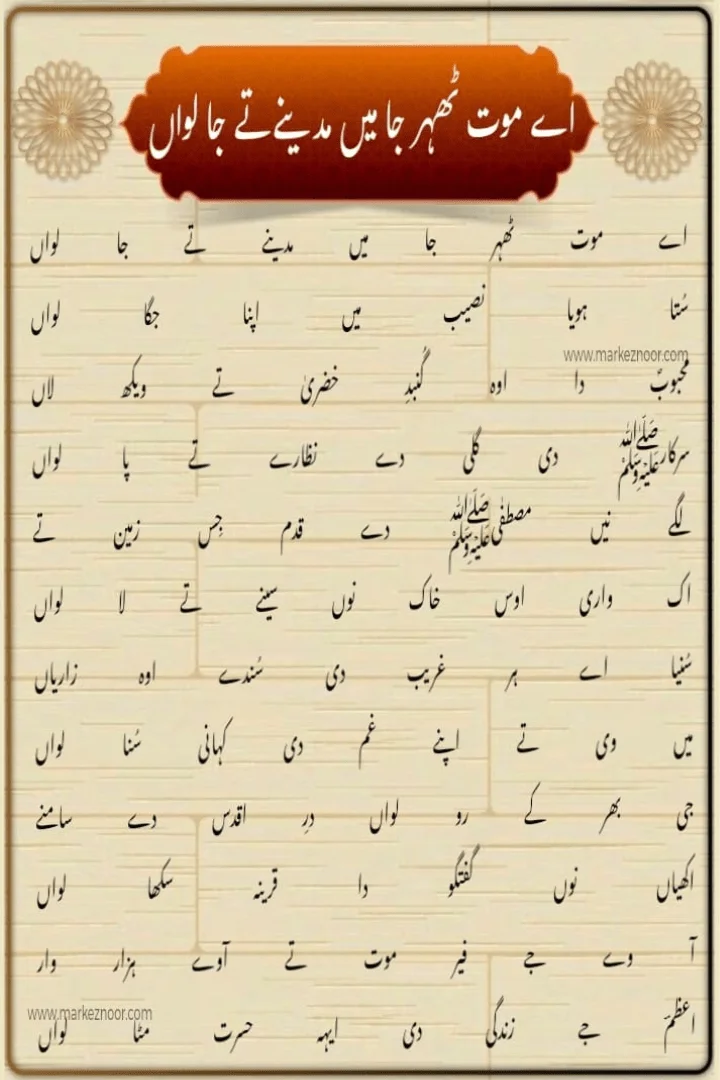 اے موت ٹھہر جا میں مدینے تے جا لواں
اے موت ٹھہر جا میں مدینے تے جا لواں
سُتا ہویا نصیب میں اپنا جگا لواں
www.markeznoor.com
محبوبؐ دا اوہ گُنبدِ خضریٰ تے ویکھ لاں
سرکار ﷺ دی گلی دے نظارے تے پا لواں
لگے نیں مصطفٰی ﷺ دے قدم جِس زمین تے
اک واری اوس خاک نوں سینے تے لا لواں
سُنیا اے ہر غریب دی سُندے اوہ زاریاں
میں وی تے اپنے غم دی کہانی سُنا لواں
جی بھر کے رو لواں درِ اقدس دے سامنے
اکھیاں نوں گفتگو دا قرینہ سکھا لواں
آ وے جے فیر موت تے آوے ہزار وار
www.markeznoor.com
اعظمؔ جے زندگی دی ایہہ حسرت مٹا لواں